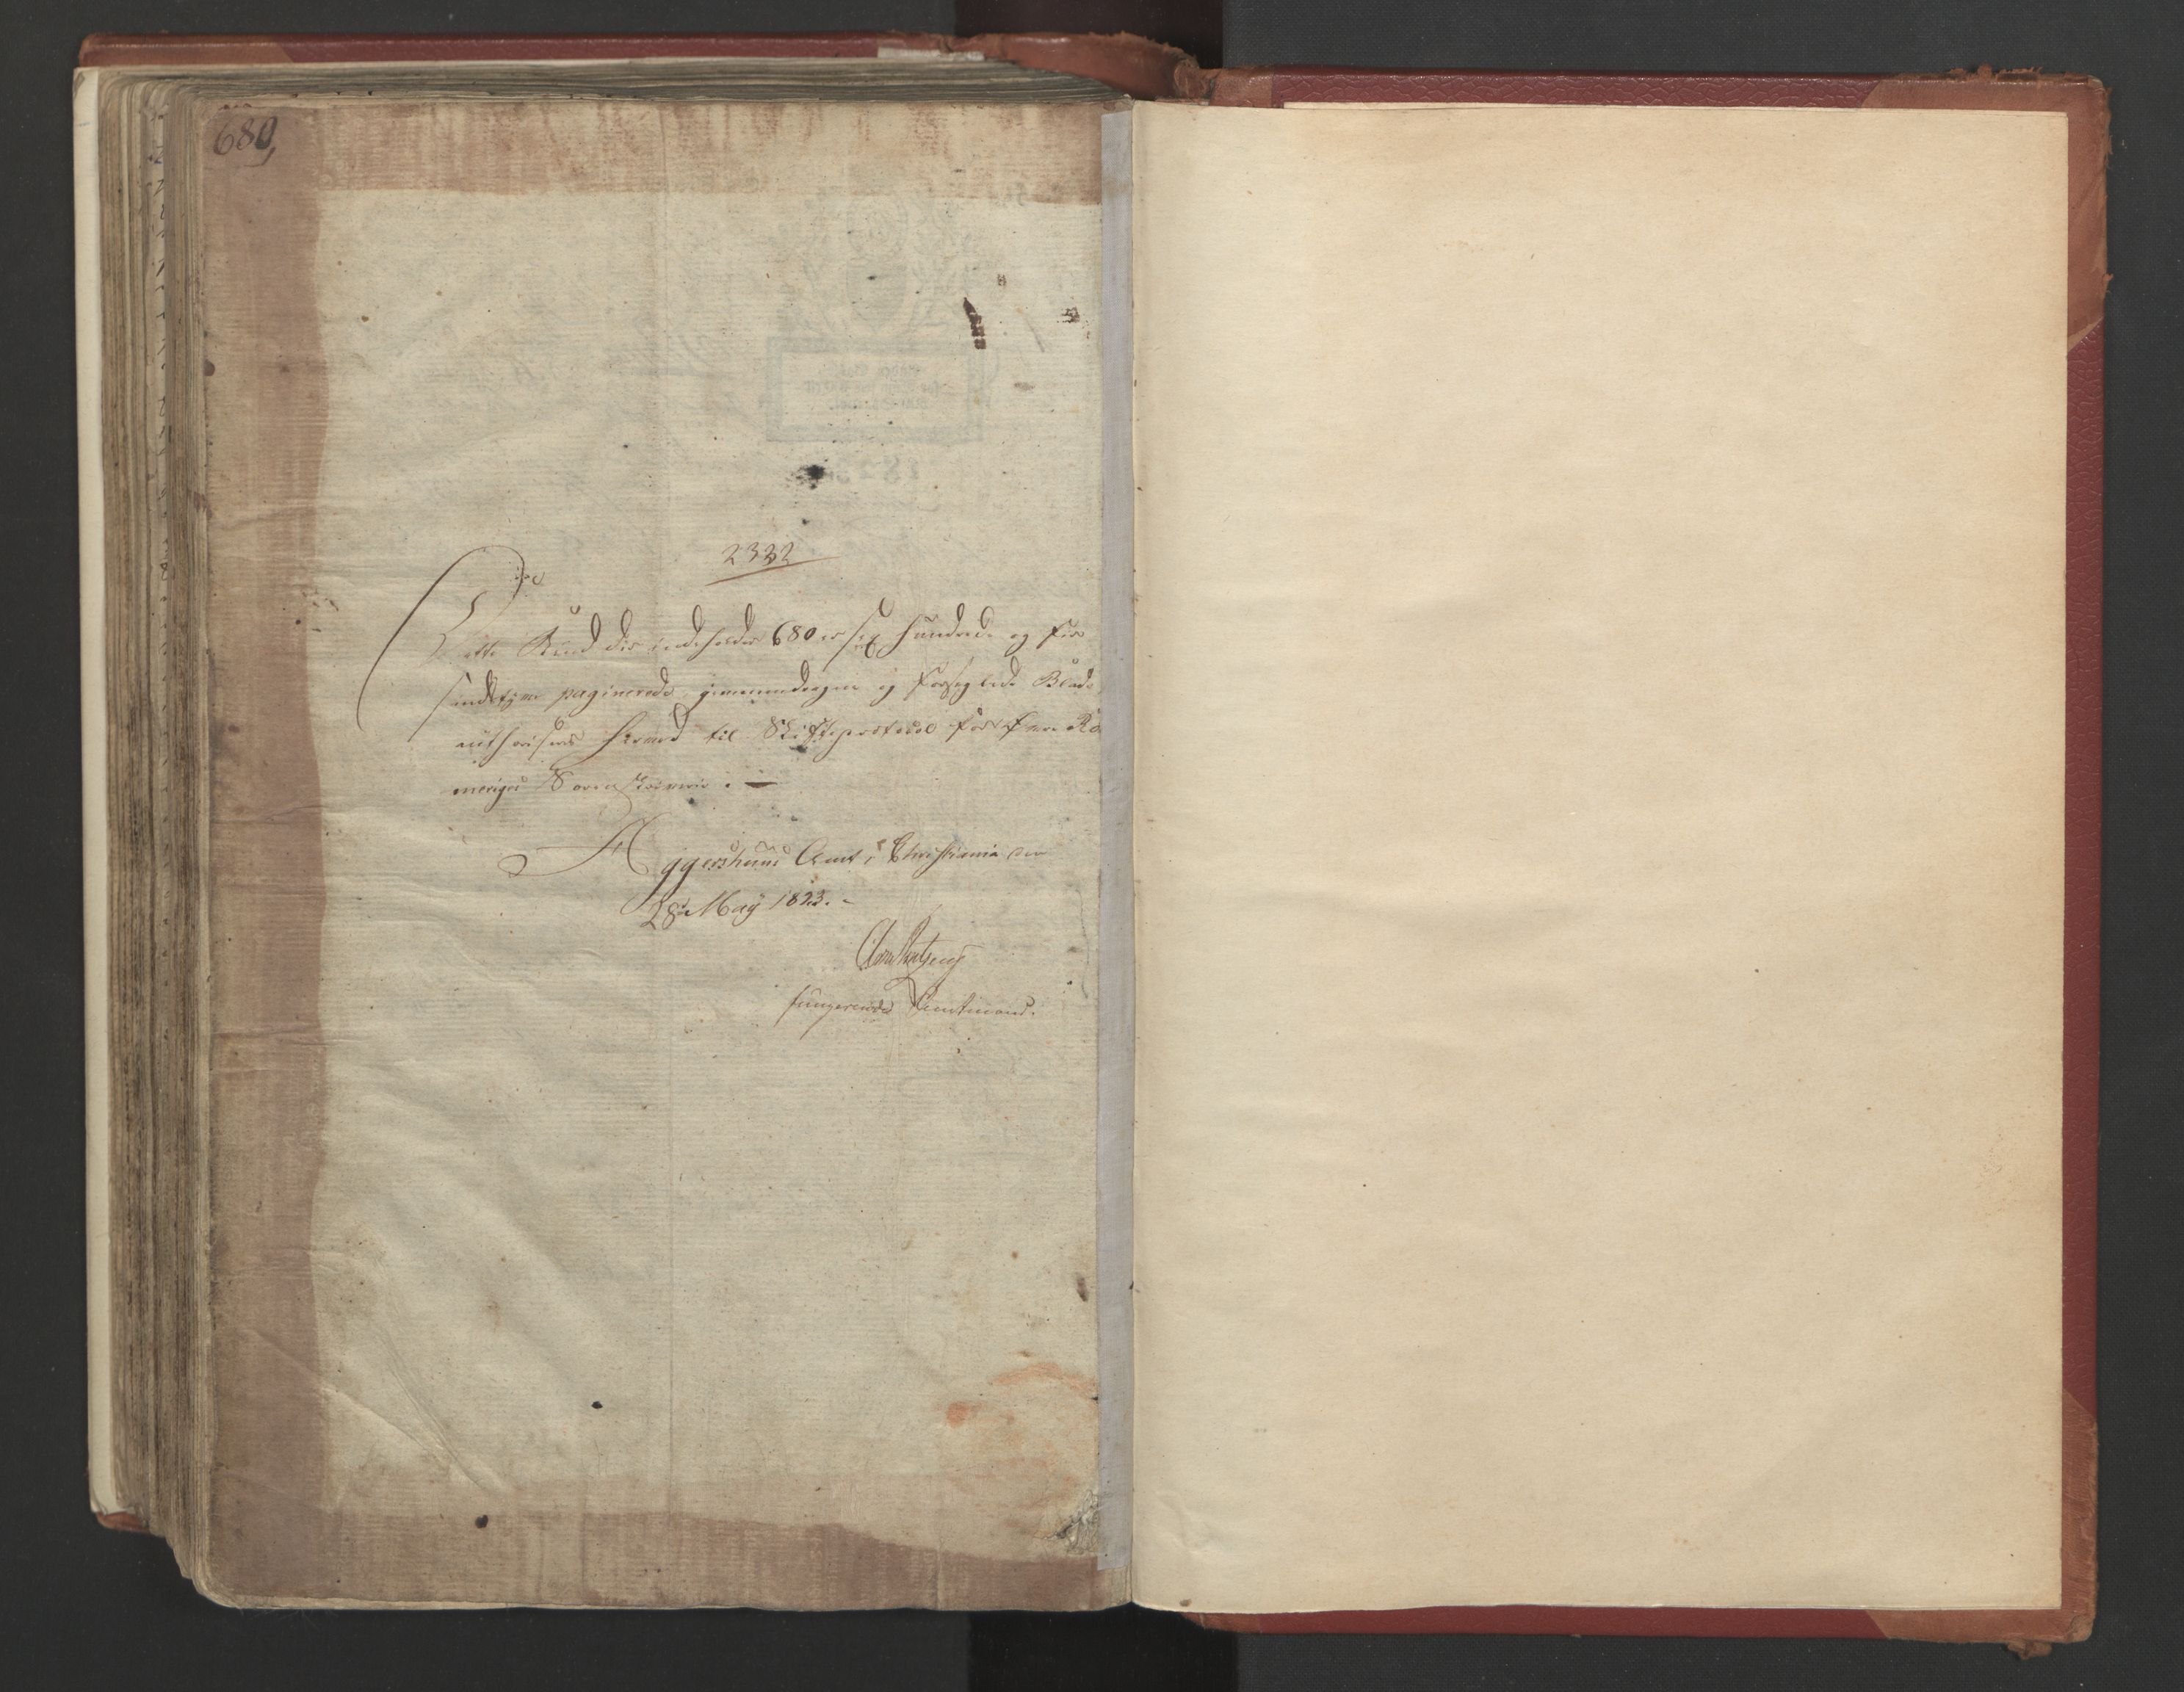 680,
2322
Dette Bind der indeholder 680 er sex hundrede og fiir
sindstyve paginerede, gjennemdragne og forseglede Blade
authoriseres herved til Skifteprotocol for Øvre Ro
merigs Sorenskriverie. —
Aggershuus Amt i Christiania den
28de May 1823. -
fungerende Amtmand.